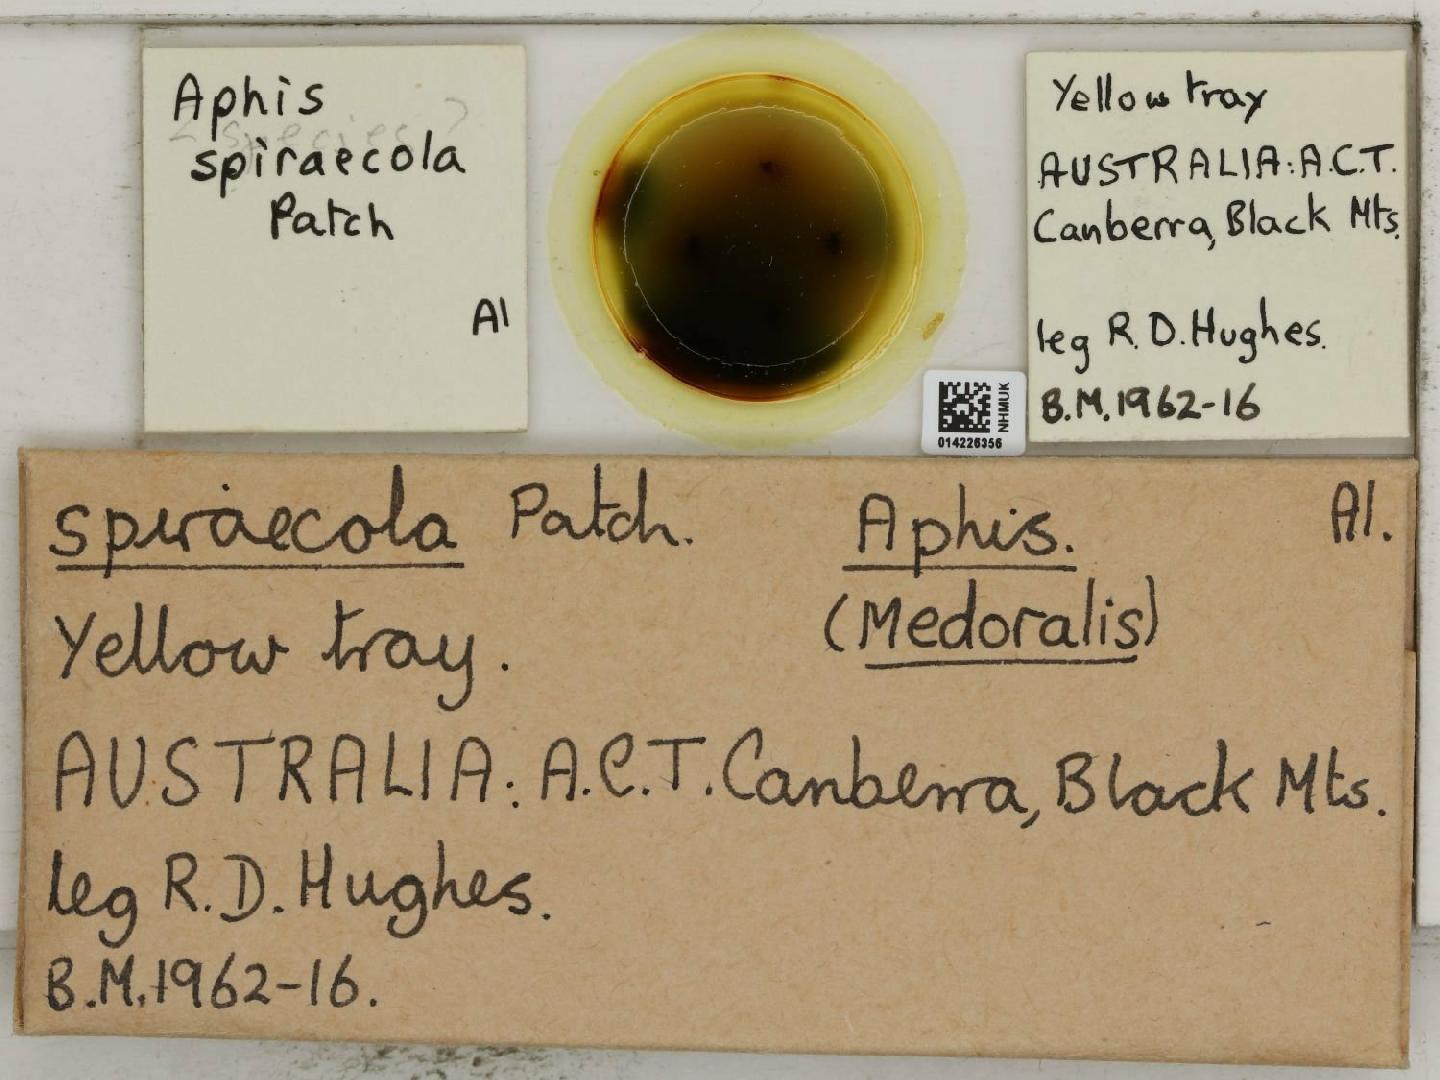 Aphis
2 species?
spiraecola
Patch
Al
Yellow tray
AUSTRALIA: A.C.T.
Canberra, Black Mts.
leg R. D. Hughes.
B.M. 1962-16
NHMUK
014226356
spiraecola Patch. Aphis. Al.
(Medoralis)
Yellow tray.
AUSTRALIA: A.C.T. Canberra, Black Mts.
leg R. D. Hughes.
B.M. 1962-16.